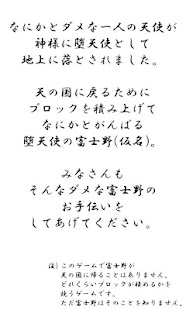 なにかとダメな一人の天使が
神様に堕天使として
地上に落とされました。
天の国に戻るために
ブロックを積み上げて
なにかとがんばる
堕天使の富士野(仮名)。
みなさんも
そんなダメな富士野の
お手伝いを
してあげてください。
注) このゲームで富士野が
天の国に帰ることはありません。
どれくらいブロックが積めるかを
競うゲームです。
ただ富士野はそのことを知りません。